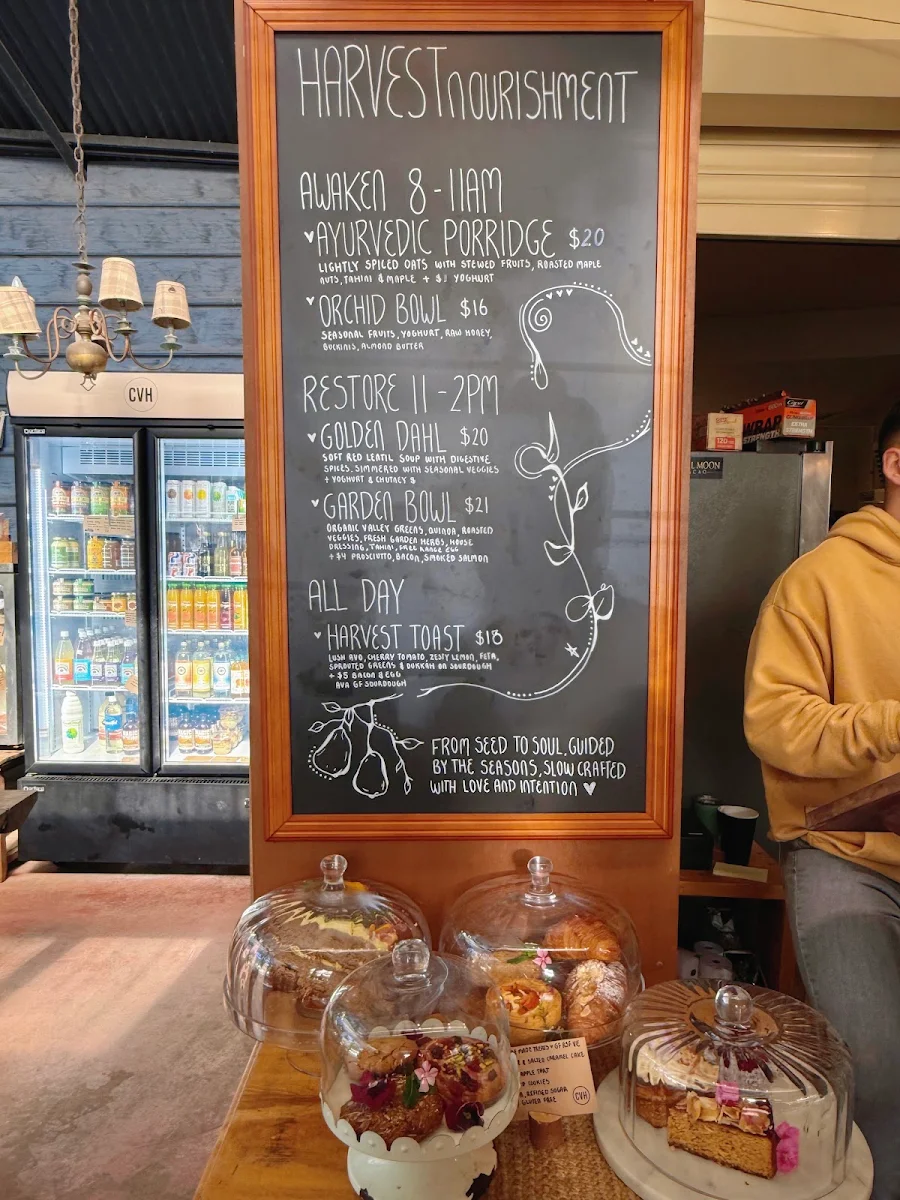 HARVEST NOURISHMENT
AWAKEN 8-11AM
♥AYURVEDIC PORRIDGE $20
LIGHTLY SPICED OATS WITH STEWED FRUITS, ROASTED MAPLE
NUTS, TAHINI & MAPLE + $1 YOGHURT
♥ORCHID BOWL $16
SEASONAL FRUITS, YOGHURT, RAW HONEY,
BUCKINIS, ALMOND BUTTER
RESTORE 11-2PM
♥GOLDEN DAHL $20
SOFT RED LENTIL SOUP WITH DIGESTIVE
SPICES, SIMMERED WITH SEASONAL VEGGIES
+ YOGHURT & CHUTNEY $
♥GARDEN BOWL $21
ORGANIC VALLEY GREENS, QUINOA, ROASTED
VEGGIES, FRESH GARDEN HERBS, HOUSE
DRESSING, TAHINI, FREE RANGE EGG
+ $4 PROSCIUTTO, BACON, SMOKED SALMON
ALL DAY
♥HARVEST TOAST $18
LUSH AVO, CHERRY TOMATO, ZESTY LEMON, FETA,
SPROUTED GREENS & DUKKAH ON SOURDOUGH
+ $5 BACON & EGG
AVA GF SOURDOUGH
FROM SEED TO SOUL, GUIDED
BY THE SEASONS, SLOW CRAFTED
WITH LOVE AND INTENTION ♥
CVH
WRAP
STRENGTH
EXTRA
STRENGTH
120
MOON
MADE TREATS
& SALTED CARAMEL CAKE
APPLE TART
COOKIES
REFINED SUGAR
GLUTEN FREE
CVH